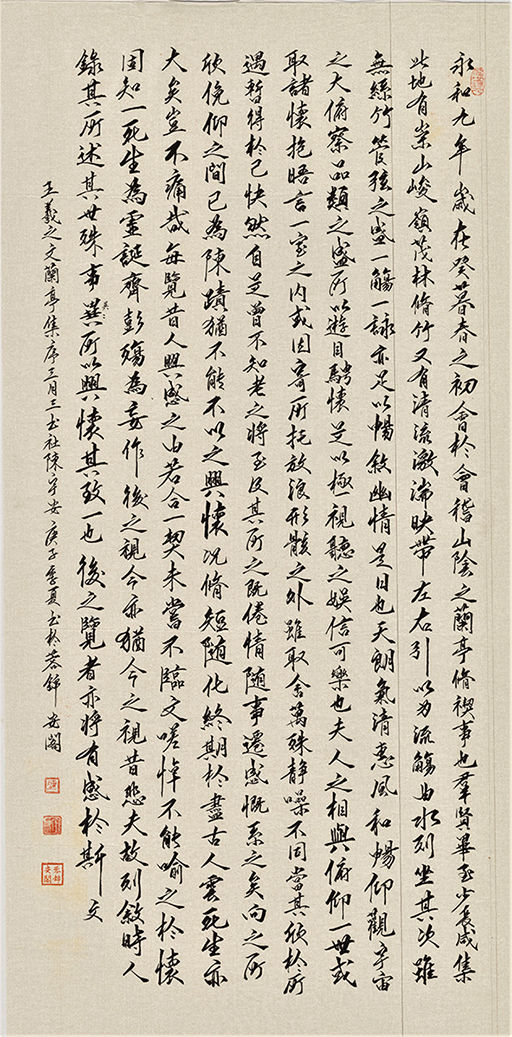 永和九年歲在癸暮春之初會於會稽山陰之蘭亭脩禊事也羣賢畢至少長咸集
此地有崇山峻嶺茂林脩竹又有清流激湍映帶左右引以為流觴曲水列坐其次雖
無絲竹管弦之盛一觴一詠亦足以暢敘幽情是日也天朗氣清惠風和暢仰觀宇宙
之大俯察品類之盛所以遊目騁懷足以極視聽之娛信可樂也夫人之相與俯仰一世或
取諸懷抱晤言一室之內或因寄所托放浪形骸之外雖取舍萬殊静噪不同當其欣於所
遇暫得於己快然自足曾不知老之將至及其所之既倦情隨事遷感慨系之矣向之所
欣俛仰之間已為陳蹟猶不能不以之興懷況脩短随化終期於盡古人雲死生亦
大矣豈不痛哉每覽昔人興感之由若合一契未嘗不臨文嗟悼不能喻之於懷
固知一死生為虛誕齊彭殤為妄作後之視今亦猶今之視昔悲夫故列敘時人
錄其所述其世殊事異所以興懷其致一也後之覽者亦將有感於斯文
王羲之文蘭亭集序三月三書社陳宇安庚子季夏書於蓉錦安閣
蓉錦安閣